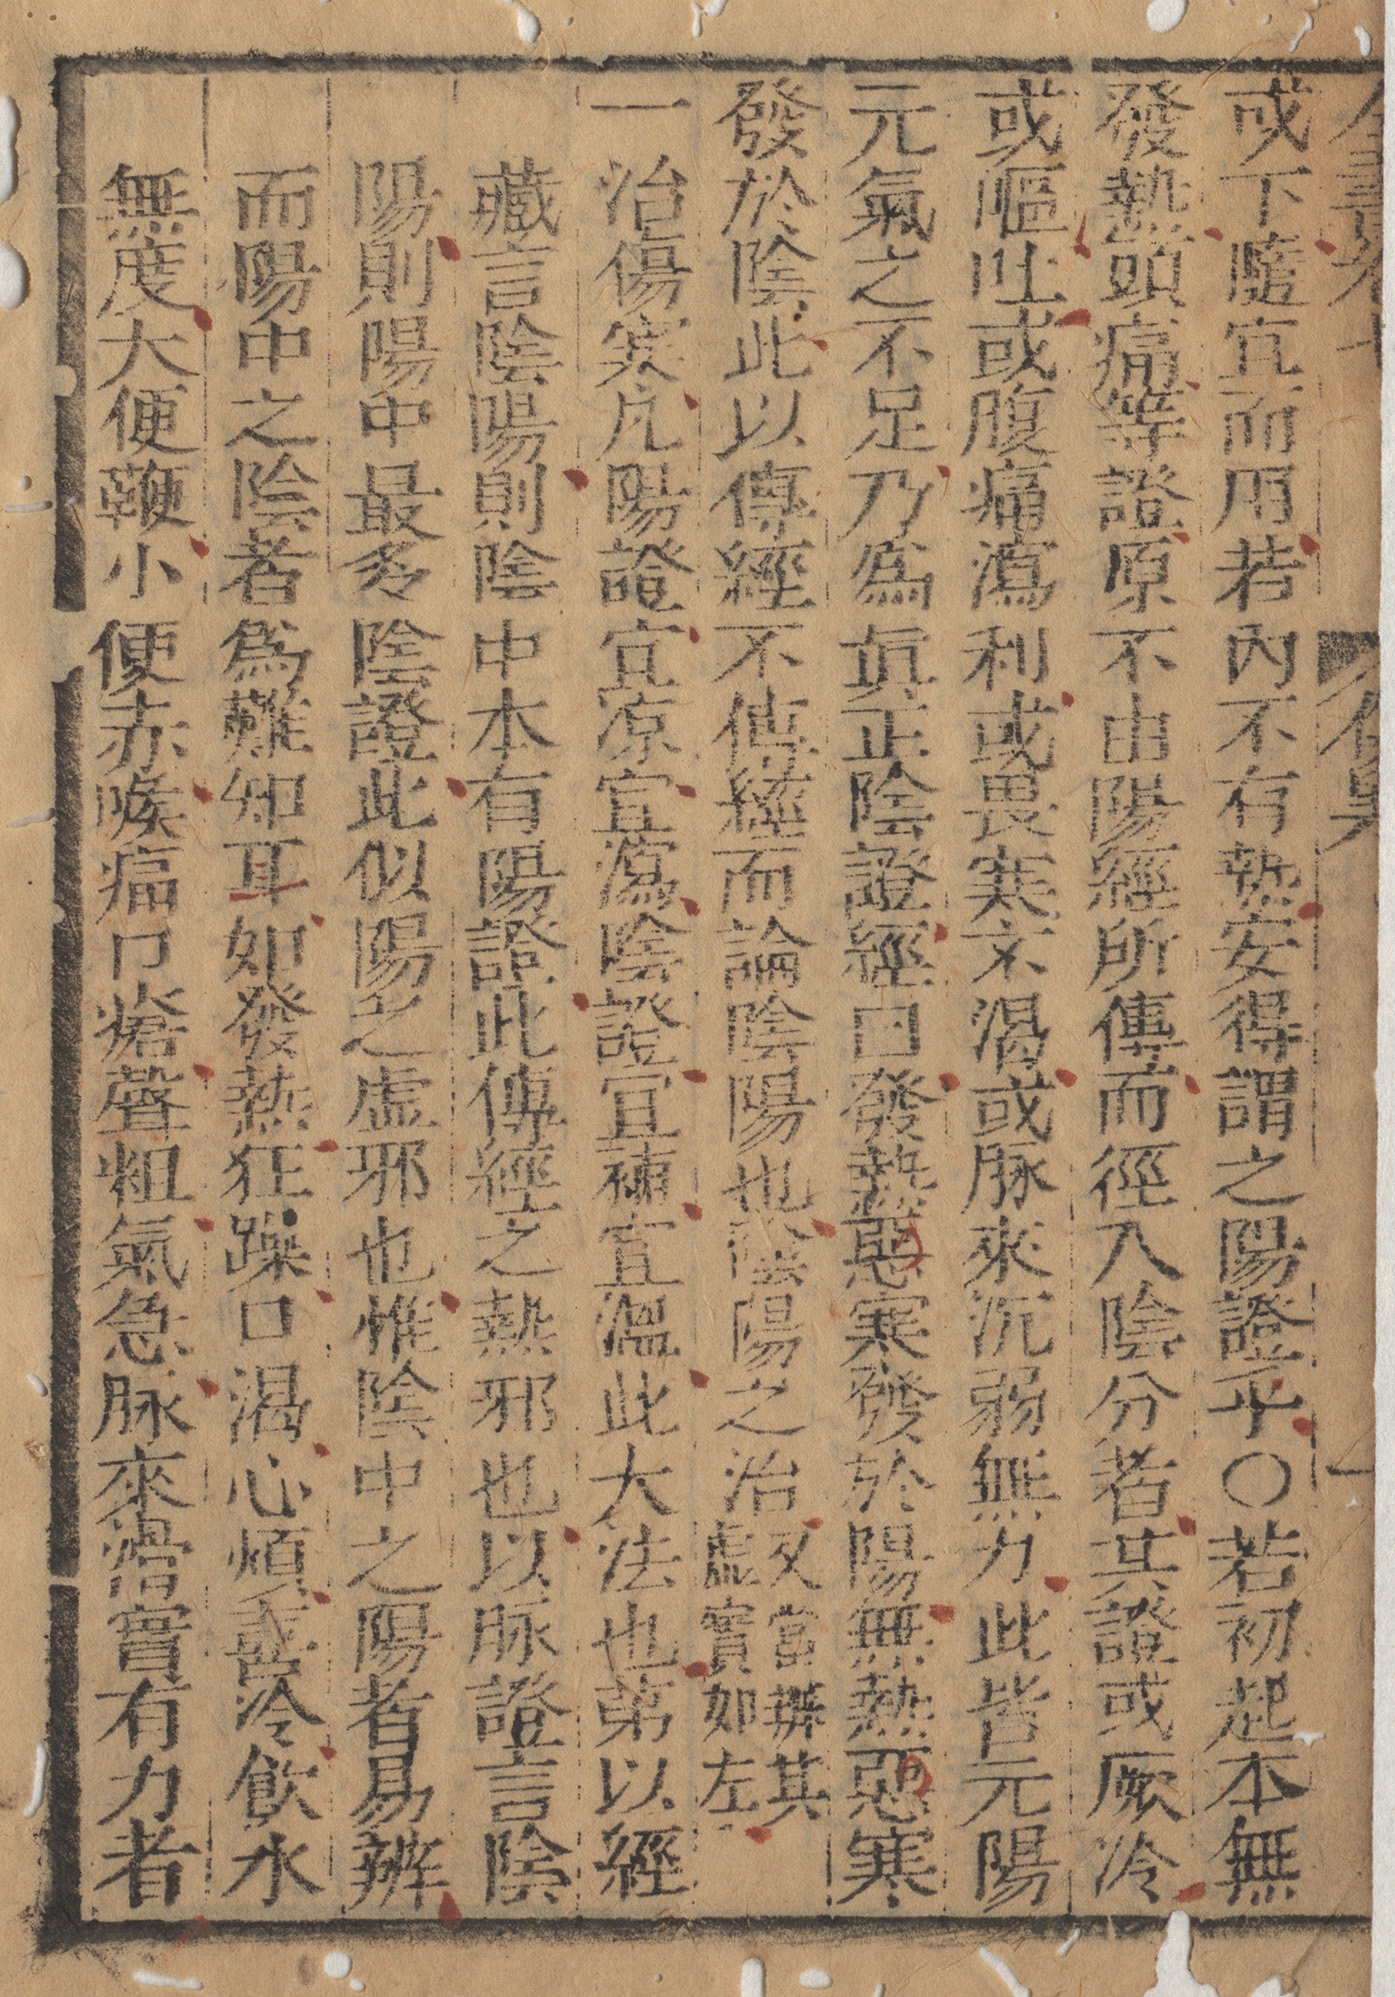 或下隨宜而用若內不有熱安得謂之陽證乎○若初起本無
發熱頭痛等證原不由陽經所傳而徑入陰分者其證或厥冷
或嘔吐或腹痛瀉利或畏寒不渴或脉來沉弱無力此皆元陽
元氣之不足乃為眞正陰證經曰發熱惡寒發於陽無熱惡寒
發於陰此以傳經不傳經而論陰陽也陰陽之治又當辨其虛實如左
一治傷寒凡陽證宜凉宜瀉陰證宜補宜溫此大法也第以經
藏言陰陽則陰中本有陽證此傳經之熱邪也以脉證言陰
陽則陽中最多陰證此似陽之虛邪也惟陰中之陽者易辨
而陽中之陰者為難知耳如發熱狂躁口渴心煩喜冷飲水
無度大便鞕小便赤喉痛口瘡聲粗氣急脉來滑實有力者